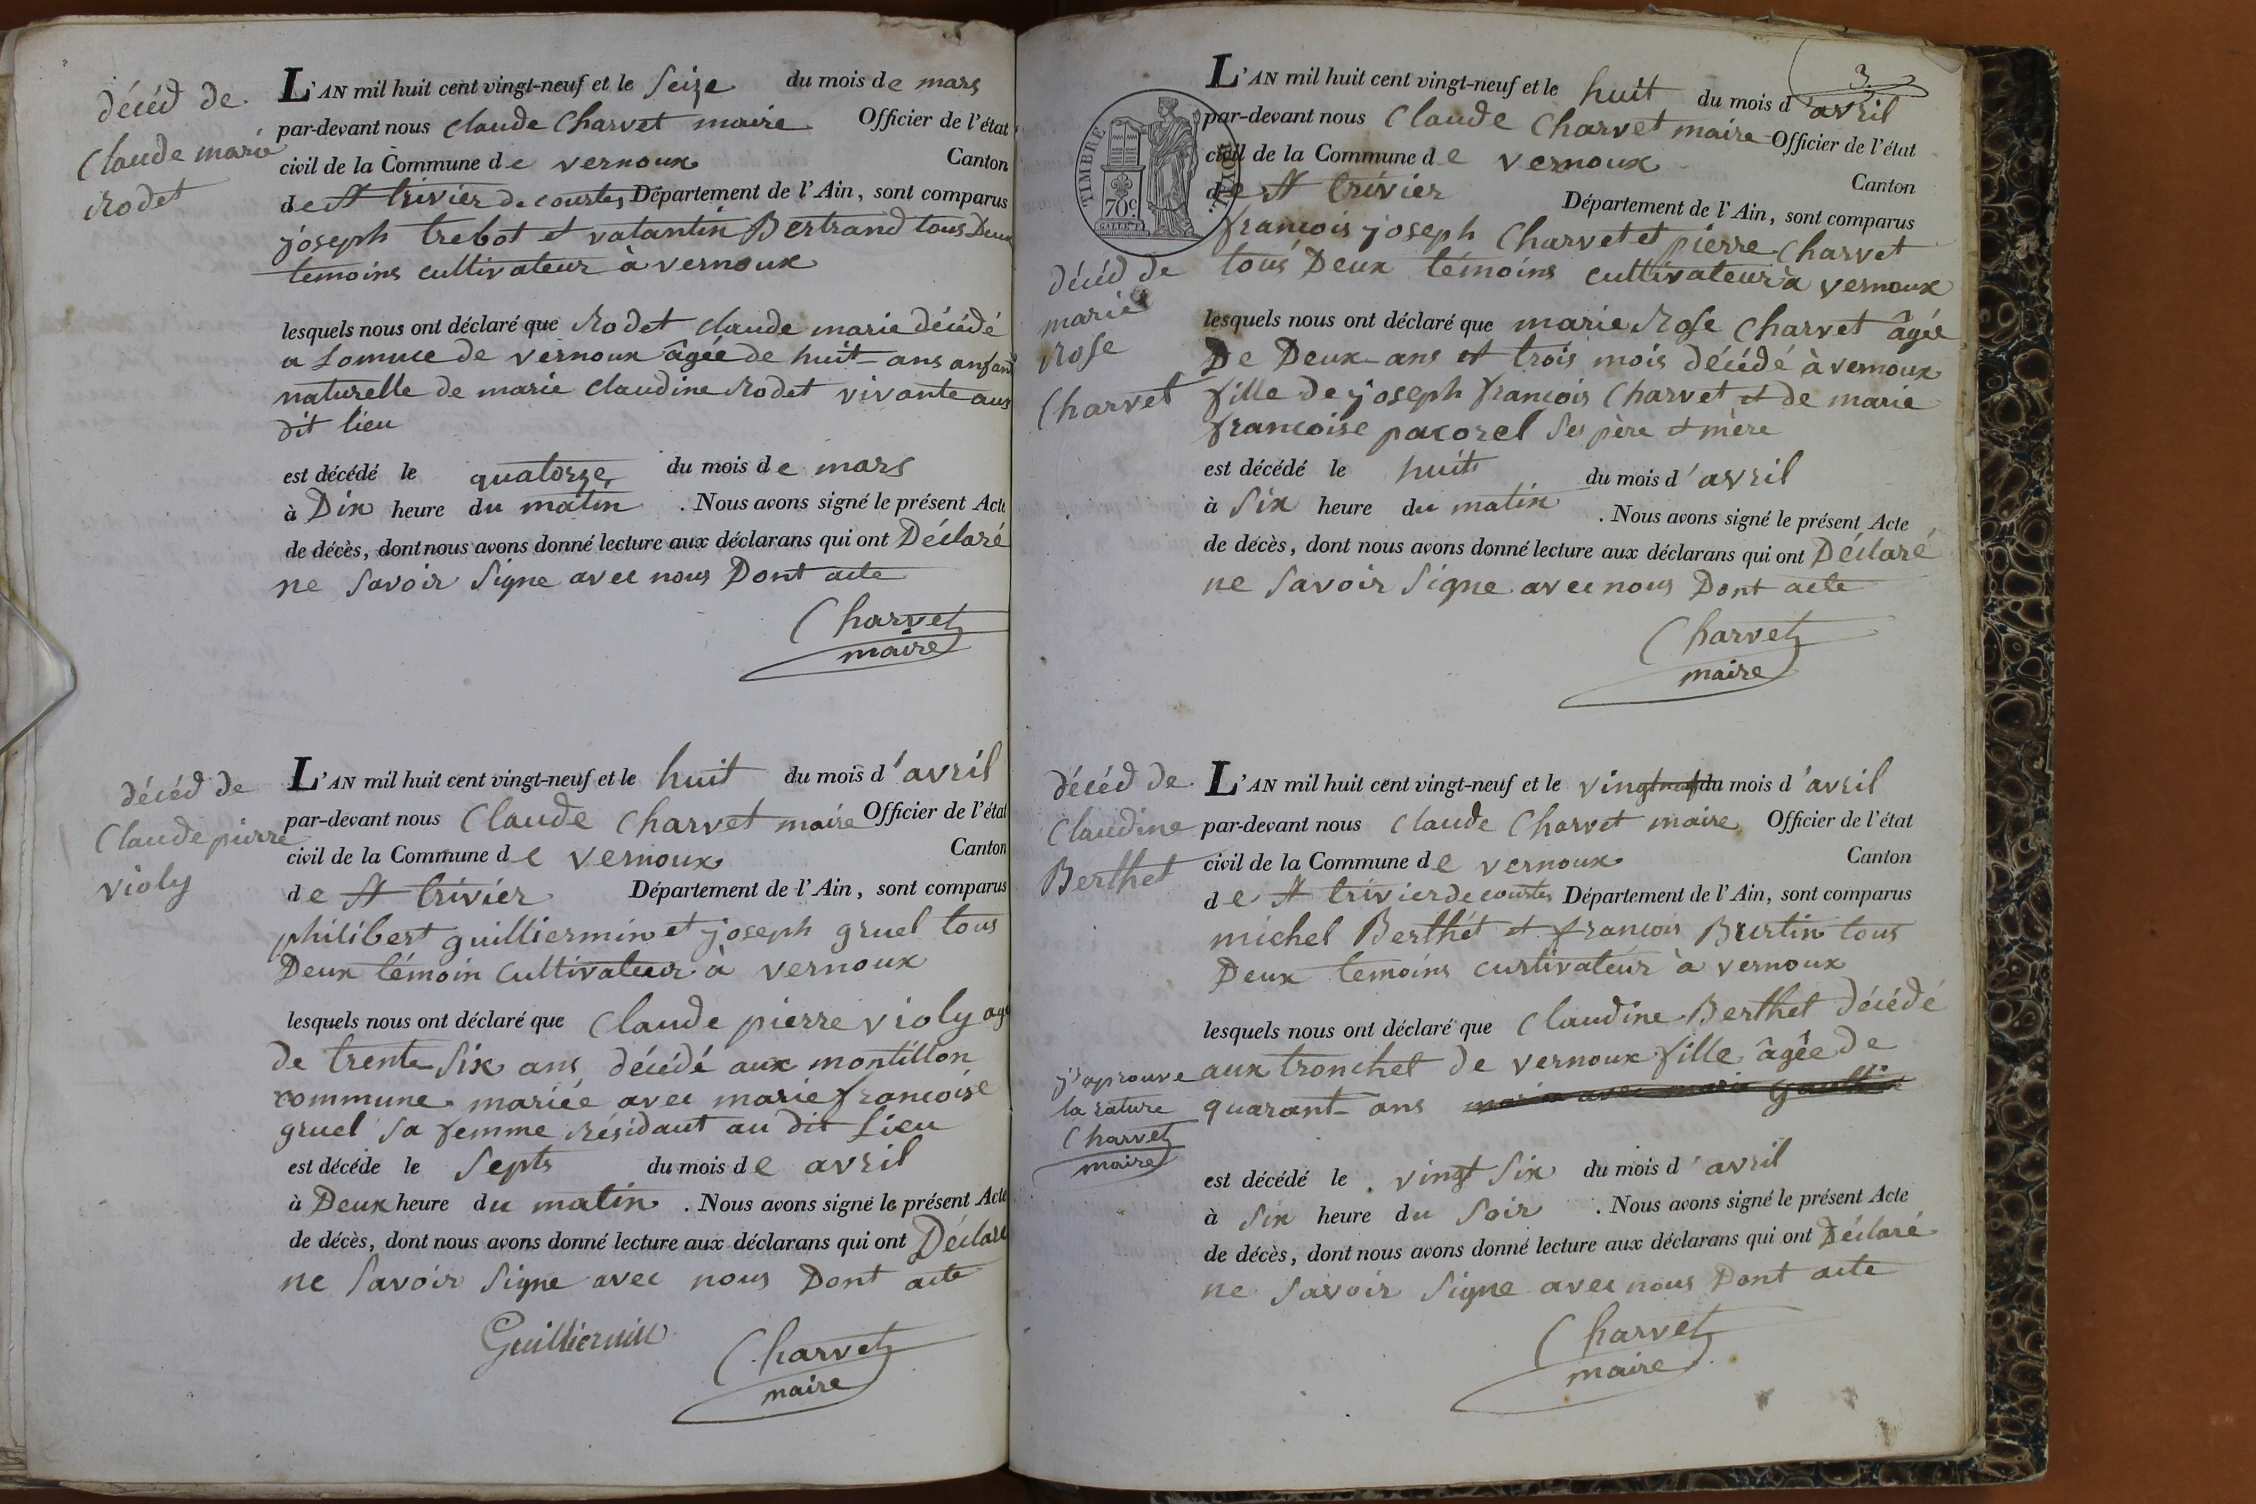 décéd de
Claude marie
Rodet
L'AN mil huit cent vingt-neuf et le Seize du mois de mars
par-devant nous Claude Charvet maire Officier de l'état
civil de la Commune de vernoux Canton
de St trivier de courtes Département de l'Ain, sont comparus
joseph trebot et valantin Bertrand tous Deux
temoins cultivateur à vernoux
lesquels nous ont déclaré que Rodet claude marie décédé
a de vernoux âgée de huit ans anfant
naturelle de marie Claudine Rodet vivante aus
dit lieu
est décédé le quatorze du mois de mars
à Dix heure du matin . Nous avons signé le présent Acte
de décès, dont nous avons donné lecture aux déclarans qui ont Déclaré
ne Savoir Signe avec nous Dont acte
Charvet
maire
décéd de
Claude pierre
violy
L'AN mil huit cent vingt-neuf et le huit du mois d'avril
par-devant nous Claude Charvet maire Officier de l'état
civil de la Commune de vernoux Canton
de St trivier Département de l'Ain, sont comparus
philibert guilliermin et joseph gruel tous
Deux témoin Cultivateur à vernoux
lesquels nous ont déclaré que Claude pierre violy age
de trente Six ans décédé aux montillon
commune mariéé avec marie francoise
gruel Sa femme résidant au dit Lieu
est décéde le Septs du mois de avril
à Deux heure du matin . Nous avons signé le présent Acte
de décès, dont nous avons donné lecture aux déclarans qui ont Déclaré
ne Savoir Signe avec nous Dont acte
Guilliermin
Charvet
maire
3
TIMBRE ROYAL
70 c.
décéd de
marie
Rose
Charvet
L'AN mil huit cent vingt-neuf et le huit du mois d'avril
par-devant nous Claude Charvet maire Officier de l'état
civil de la Commune de vernoux Canton
de St trivier Département de l'Ain, sont comparus
françois joseph Charvet et pierre Charvet
tous Deux témoins cultivateur à vernoux
lesquels nous ont déclaré que marie Rose Charvet âgée
De Deux ans et trois mois décédé à vernoux
fille de joseph françois Charvet et de marie
francoise pacorel Ses père et mère
est décédé le huit du mois d'avril
à Six heure du matin . Nous avons signé le présent Acte
de décès, dont nous avons donné lecture aux déclarans qui ont Déclaré
ne Savoir Signe avec nous Dont acte
Charvet
maire
décéd de
Claudine
Berthet
L'AN mil huit cent vingt-neuf et le vingt neuf du mois d'avril
par-devant nous Claude Charvet maire Officier de l'état
civil de la Commune de vernoux Canton
de St trivier de courtes Département de l'Ain, sont comparus
michel Berthet et françois Burtin tous
Deux temoins curtivateur à vernoux
lesquels nous ont déclaré que Claudine Berthet décédé
aux tronchet de vernoux fille âgée de
quarant ans
j'aprouve
la rature
Charvet
maire
est décédé le vingt Six du mois d'avril
à Six heure du Soir . Nous avons signé le présent Acte
de décès, dont nous avons donné lecture aux déclarans qui ont Déclaré
ne Savoir Signe avec nous Dont acte
Charvet
maire